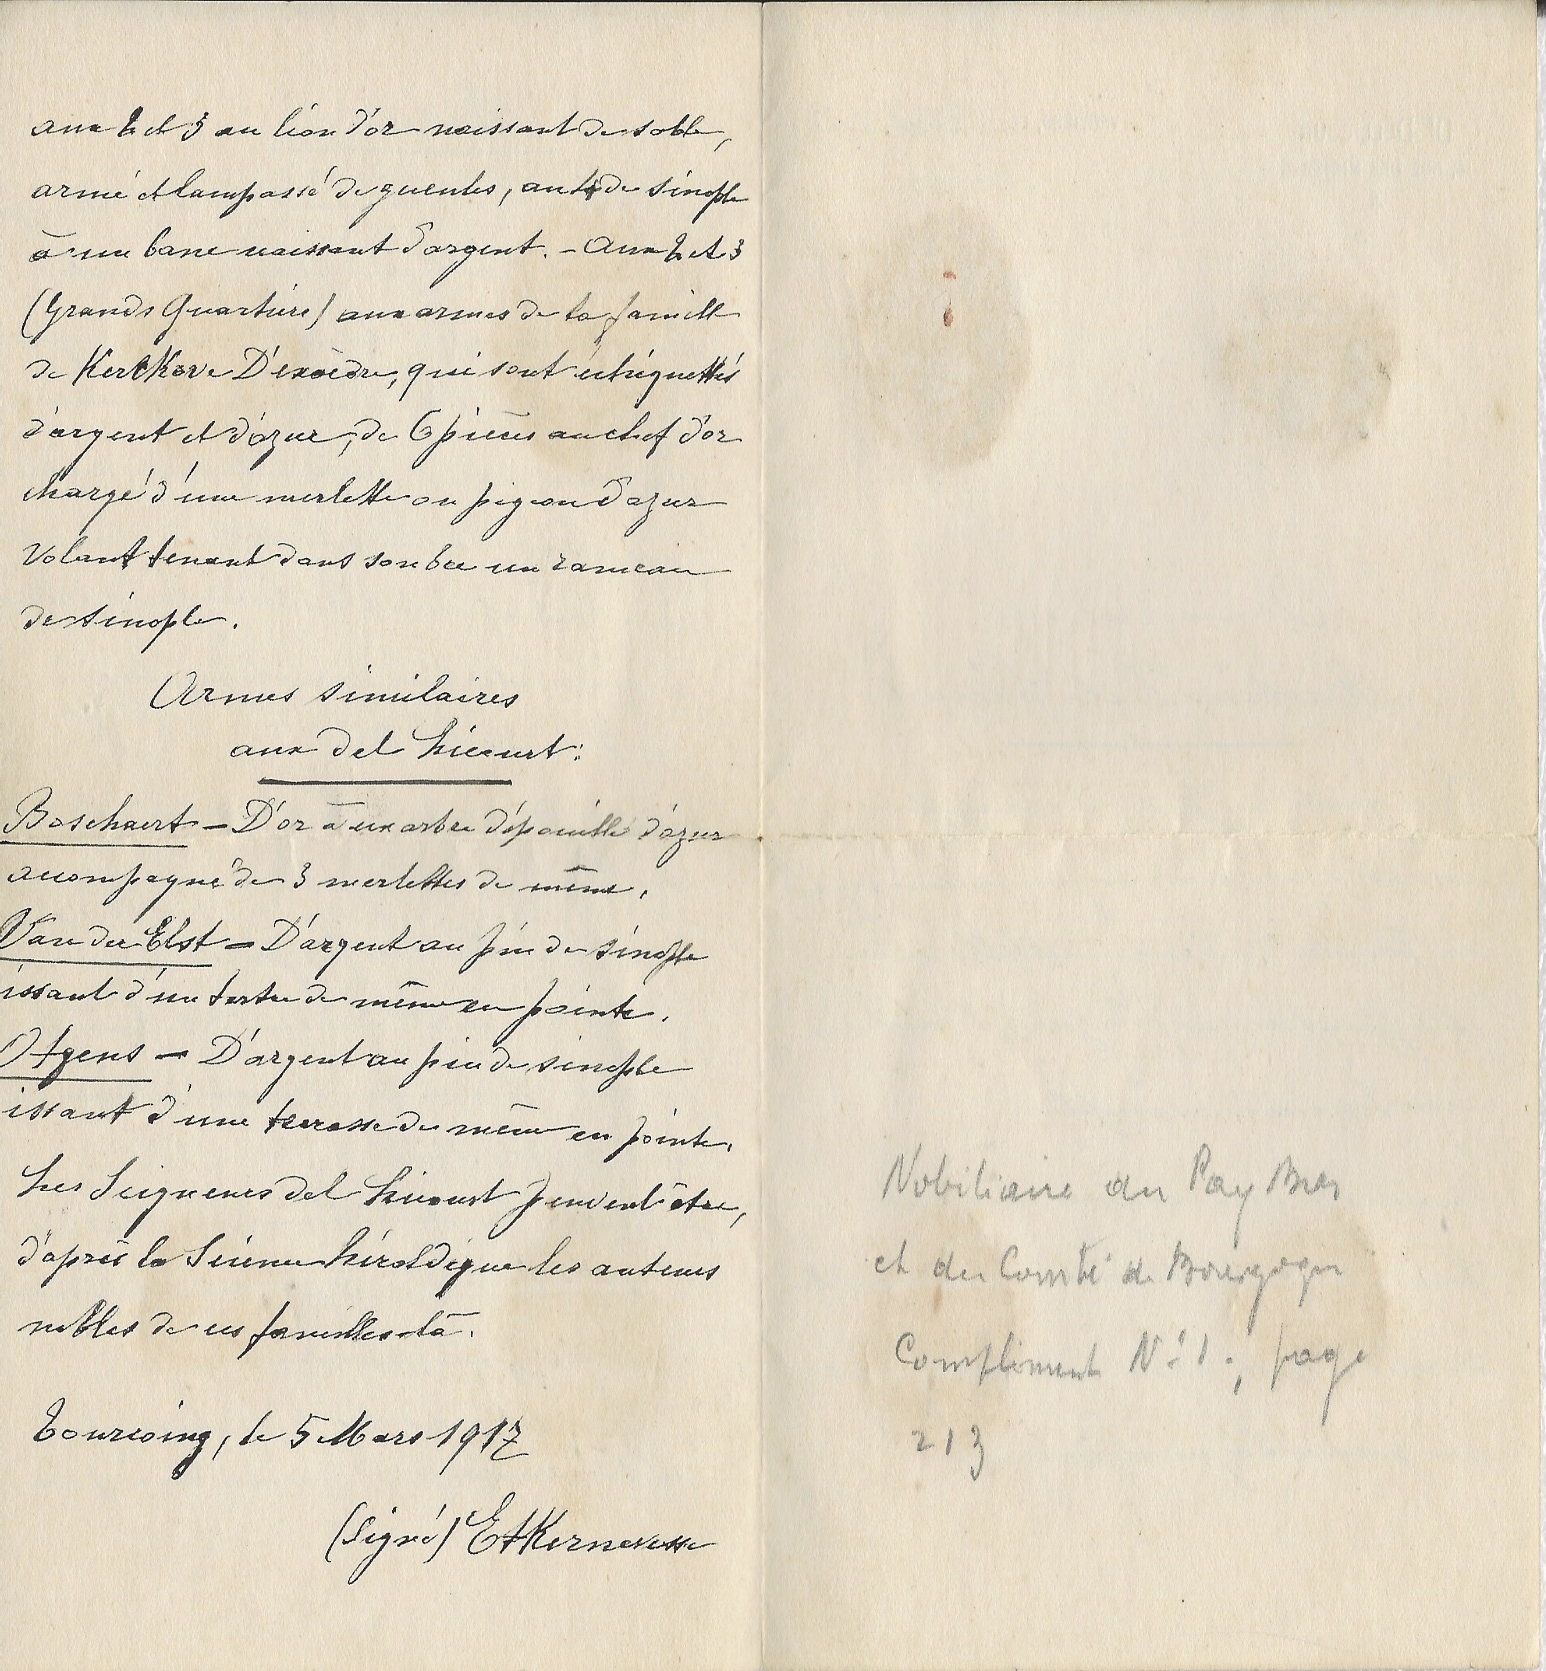 aux 2 et 3 au lion d'or naissant de sable,
armé et lampassé de gueules, au 4 de sinople
à un banc naissant d'argent. - Aux 2 et 3
(Grands Quartiers) aux armes de la famille
de Kerckove D'exaerde, qui sont échiquettés
d'argent et d'azur, de 6 pièces au chef d'or
chargé d'une merlette ou pigeon d'azur
volant tenant dans son bec un rameau
de sinople.
Armes similaires
aux del hicourt:
Boschaert - D'or à un arbre dépouillé d'azur
accompagné de 3 merlettes de même.
Van der Elst - D'argent au pin de sinople
issant d'un tertre de même en pointe.
Otgens - D'argent au pin de sinople
issant d'une terrasse de même en pointe.
Les Seigneurs del hicourt peuvent être,
d'après la Science héraldique les auteurs
nobles de ces familles-là.
Tourcoing, le 5 Mars 1917
(Signé)
Nobiliaire du Pay Bas
et du Comté de Bourgogne
Complément N° 1 ; page
213